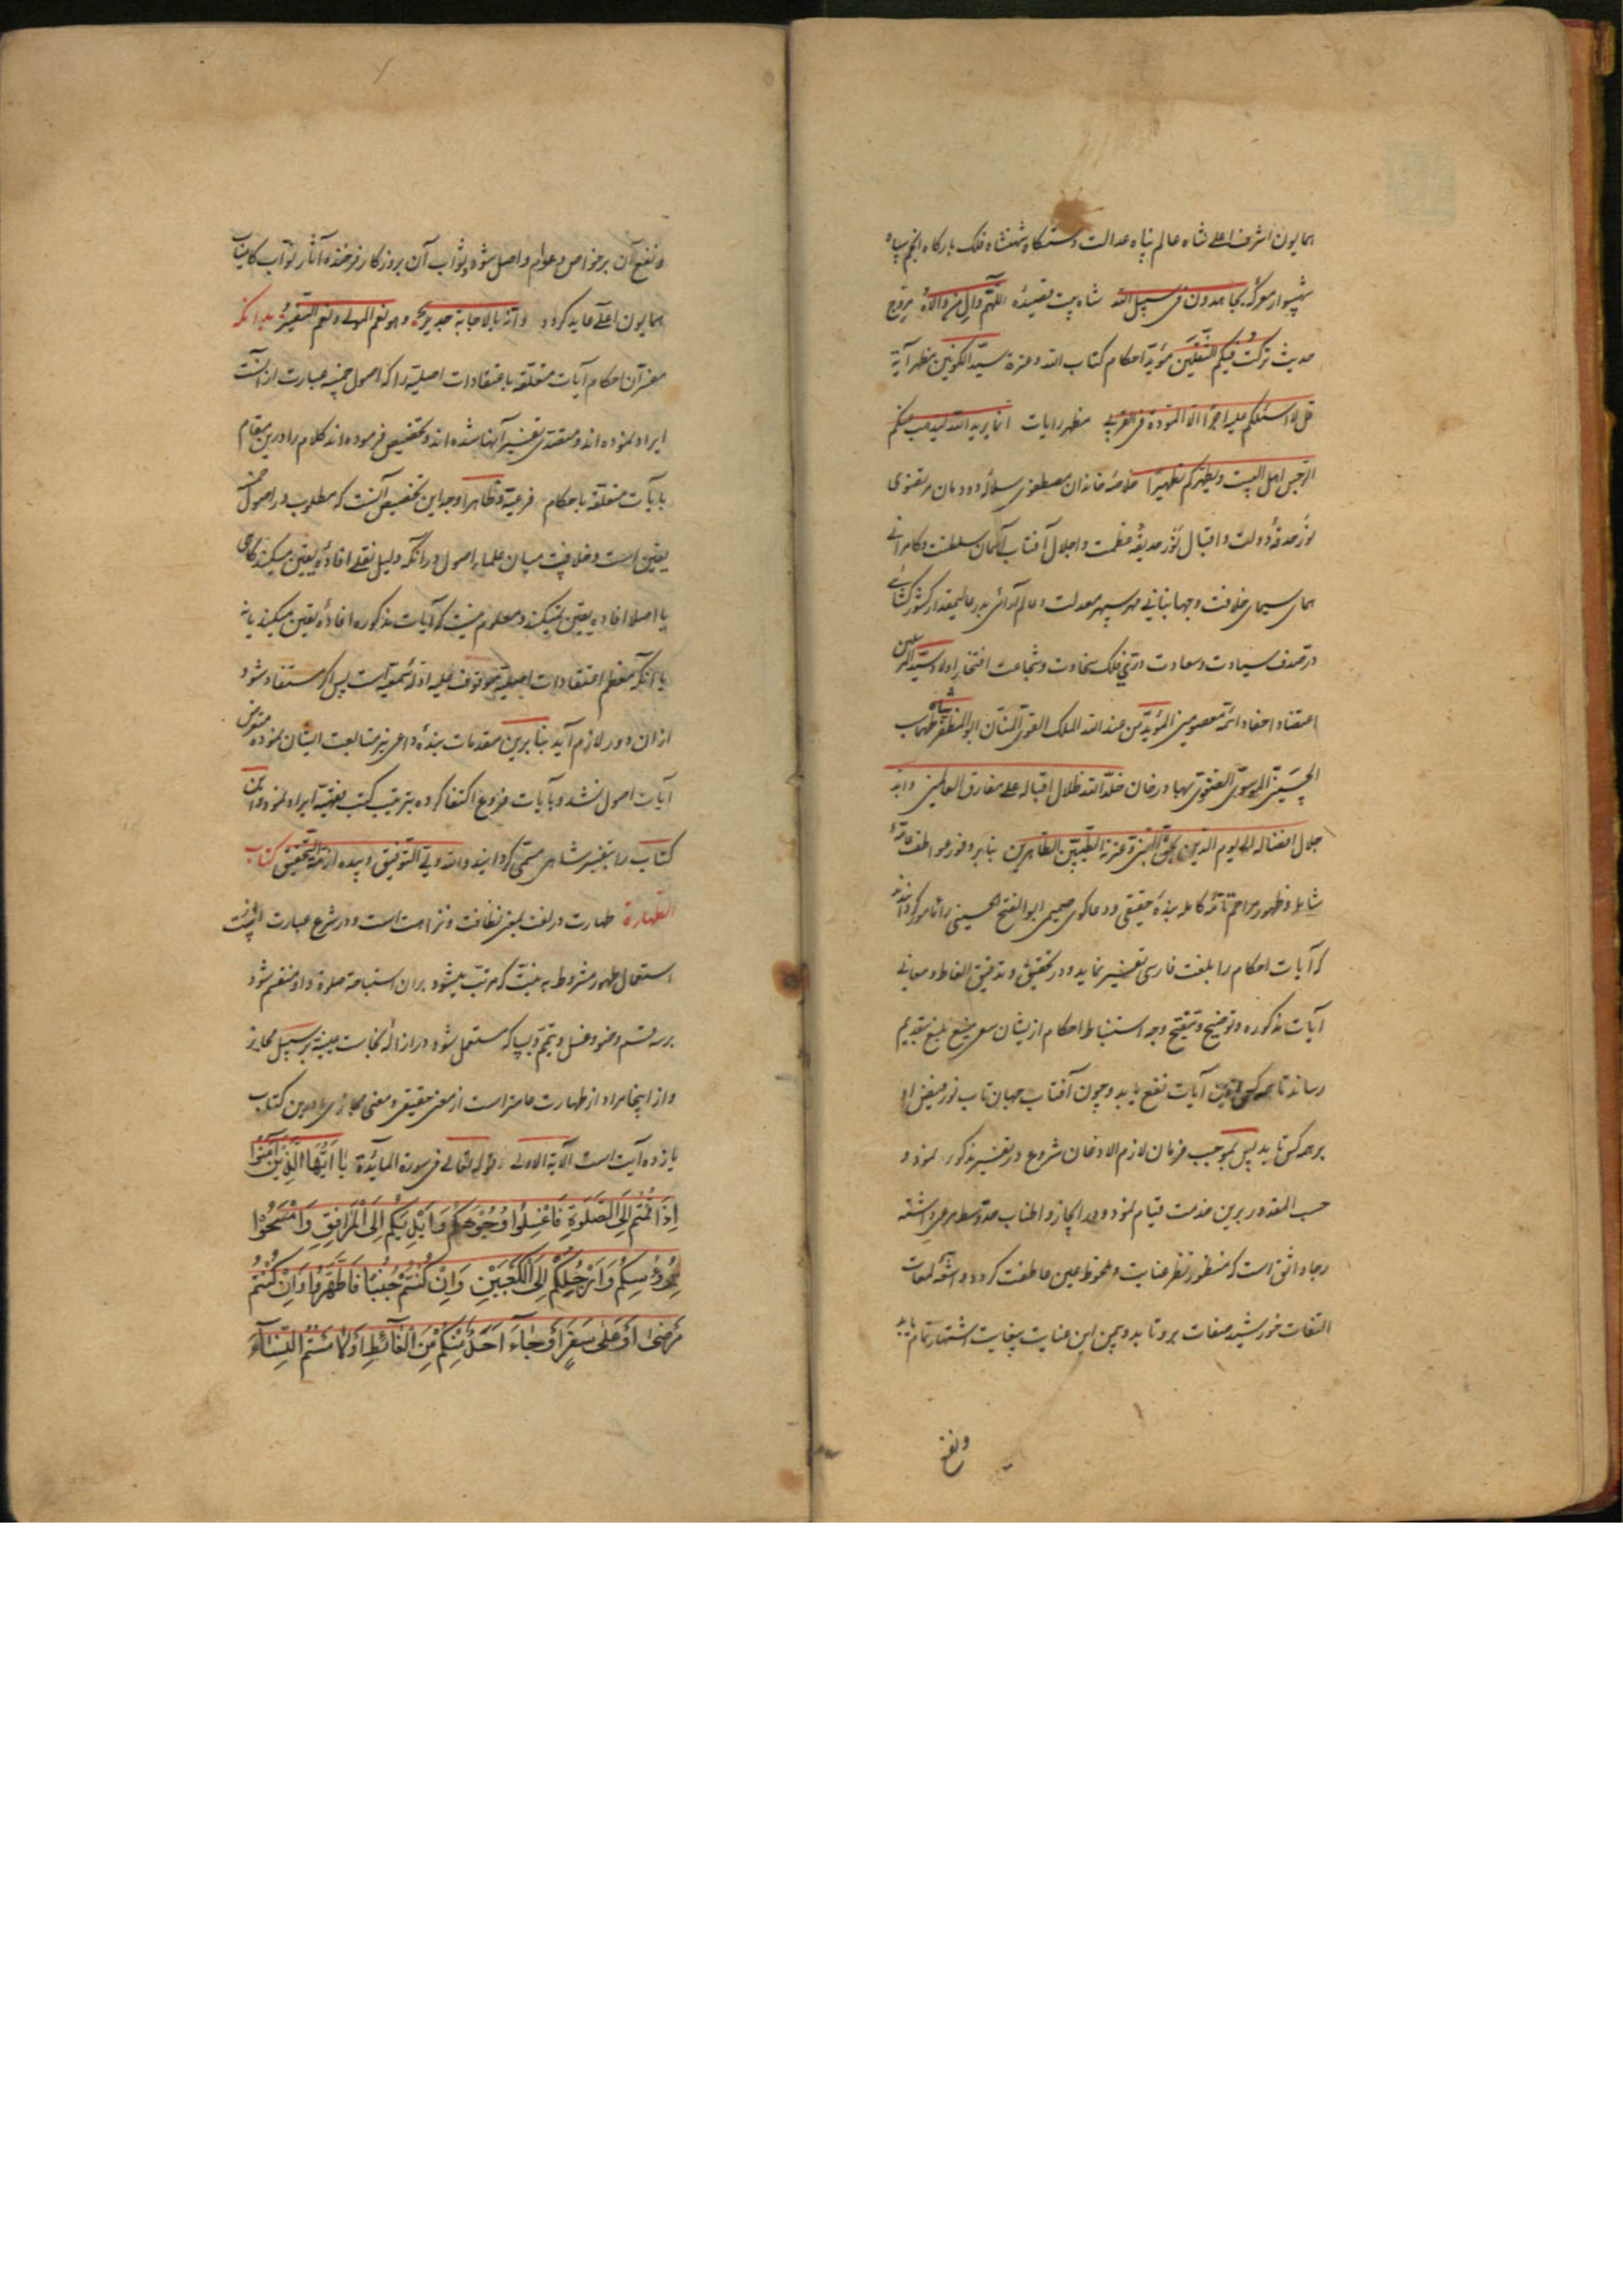 همایون اشرف اعلی شاه عالم پناه عدالت دستگاه شهنشاه فلک بارگاه انجم سپاه
شهسوار معرکه یجاهدون فی سبیل الله شاه بیت قصیده اللهم وال من والاه مروج
حدیث ترکت فیکم الثقلین مؤید احکام کتاب الله وعترة سید الکونین مظهر آیة
قل لا اسئلکم علیه اجرا الا المودة فی القربی مظهر رایات انما یرید الله لیذهب عنکم
الرجس اهل البیت ویطهرکم تطهیرا خلاصهٔ خاندان مصطفوی سلالهٔ دودمان مرتضوی
نور حدقهٔ دولت واقبال نور حدیقهٔ عظمت واجلال آفتاب آسمان سلطنت وکامرانی
همای سیمای خلافت وجهانبانی مهر سپهر معدلت وعالم آرائی بدر عالیمقدار کشورکشائی
در صدف سیادت وسعادت دری فلک سخاوت وشجاعت افتخار اولاد سید المرسلین
اعتضاد احفاد ائمة معصومین المؤید من عند الله الملک القوی المنان ابو المظفر شاه طهماسب
الحسینی الموسوی الصفوی بهادر خان خلد الله ظلال اقباله علی مفارق العالمین وابد
جلال افضاله الی یوم الدین بحق النبی وعترته الطیبین الطاهرین بنابر وفور عواطف عامهٔ
شامله وظهور مراحم تامهٔ کامله بندهٔ حقیقی ودعاکوی صمیمی ابو الفتح الحسینی را مامور کردانیدند
که آیات احکام را بلغت فارسی تفسیر نماید ودر تحقیق وتدقیق الفاظ ومعانی
آیات مذکوره وتوضیح وتنقیح وجه استنباط احکام ازیشان سعی بلیغ بتقدیم
رساند تا همه کس ازین آیات نفع یابد وچون آفتاب جهان تاب نور فیض او
بر همه کس تابد پس بموجب فرمان لازم الاذعان شروع در تفسیر مذکور نمود و
حسب المقدور برین خدمت قیام نمود ودر ایجاز واطناب حد وسط مرعی داشته
رجاء واثق است که منظور نظر عنایت وملحوظ عین عاطفت کردد واشعه لمعات
التفات خورشید صفات برو تابد وبیمن این عنایت بیغایت اشتهار تمام یابد
ونفع
ونفع آن بر خواص وعوام واصل شود وثواب آن بروزکار فرخنده آثار نواب کامیاب
همایون اعلی عاید کردد وانه بالاجابة جدیر وهو نعم المولی ونعم النصیر بدانکه
مفسران احکام آیات متعلقه باعتقادات اصلیه را که اصول خمسه عبارت از آنست
ایراد ننموده اند ومتصدی تفسیر آنها نشده اند وتخصیص فرموده اند کلام را درین مقام
بآیات متعلقه باحکام فرعیه وظاهرا وجه این تخصیص آنست که مطلوب در اصول خمسه
یقین است وخلافیست میان علماء اصول در آنکه دلیل نقلی افادهٔ یقین میکند کاهی
یا اصلا افاده یقین نمیکند ومعلوم نیست که آیات مذکوره افادهٔ یقین میکند یا نه
یا آنکه معظم اعتقادات اصلیه موقوف علیه ادلهٔ سمعیه است پس اکر مستفاد شود
ازان دور لازم آید بنابرین مقدمات بندهٔ داعی نیز متابعت ایشان نموده متعرض
آیات اصول نشد وبآیات فروع اکتفا کرده بترتیب کتب فقهیه ایراد نمود واین
کتاب را بتفسیر شاهی مسمی کردانید والله ولی التوفیق وبیده ازمة التحقیق کتاب
الطهارة طهارت در لغت بمعنی نظافت ونزاهت است ودر شرع عبارت است از
استعمال طهور مشروط به نیت که مرتب میشود بران استباحة صلوة واو منقسم شود
بر سه قسم وضو وغسل وتیمم وبسیا که مستعمل شود در ازالهٔ نجاست عینیه بر سبیل مجاز
واز اینجا مراد از طهارت عامتر است از معنی حقیقی ومعنی مجازی ودرین کتاب
یازده آیت است الآیة الاولی قوله تعالی فی سورة المائدة یا ایها الذین آمنوا
اِذَا قُمْتُمْ اِلَی الصَّلوةِ فَاغْسِلُوا وُجُوهَکُمْ وَاَیْدِیَکُمْ اِلَی الْمَرَافِقِ وَامْسَحُوا
بِرُءُوسِکُمْ وَاَرْجُلِکُمْ اِلَی الْکَعْبَیْنِ وَاِنْ کُنْتُمْ جُنُبًا فَاطَّهَّرُوا وَاِنْ کُنْتُمْ
مَرْضٰی اَوْ عَلٰی سَفَرٍ اَوْ جَاءَ اَحَدٌ مِنْکُمْ مِنَ الْغَائِطِ اَوْ لَامَسْتُمُ النِّسَاءَ